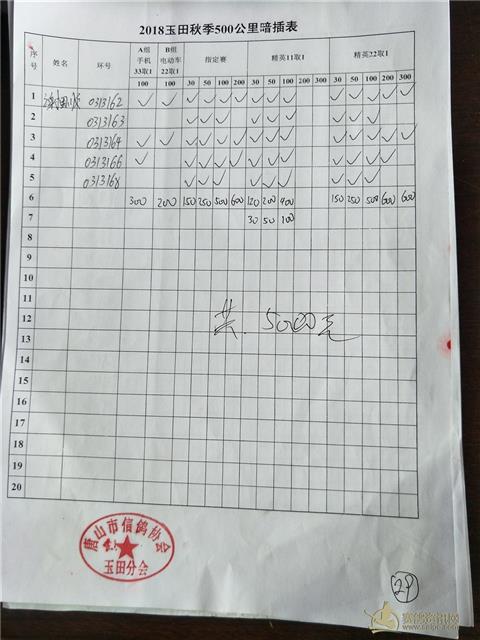 2018玉田秋季500公里暗插表
序号 姓名 环号 A组手机33取1 B组电动车22取1 指定赛 精英11取1 精英22取1
100 100 30 50 100 200 30 50 100 200 300 30 50 100 200 300
1 0313162 ✓ ✓ ✓ ✓ ✓ ✓ ✓ ✓ ✓ ✓ ✓ ✓ ✓ ✓
2 0313163 ✓ ✓ ✓ ✓ ✓ ✓ ✓ ✓ ✓
3 0313164 ✓ ✓ ✓ ✓ ✓ ✓ ✓ ✓ ✓ ✓ ✓ ✓ ✓ ✓
4 0313166 ✓ ✓ ✓ ✓ ✓ ✓ ✓ ✓ ✓ ✓ ✓ ✓
5 0313168 ✓ ✓ ✓ ✓ ✓ ✓ ✓ ✓ ✓
6 300 200 150 250 500 600 120 200 400 150 250 500 600 600
7 30 50 100
8
9
10
11
12 共 5000元
13
14
15
16
17
18
19
20
唐山市信鸽协会
玉田分会
29
赛鸽资讯网